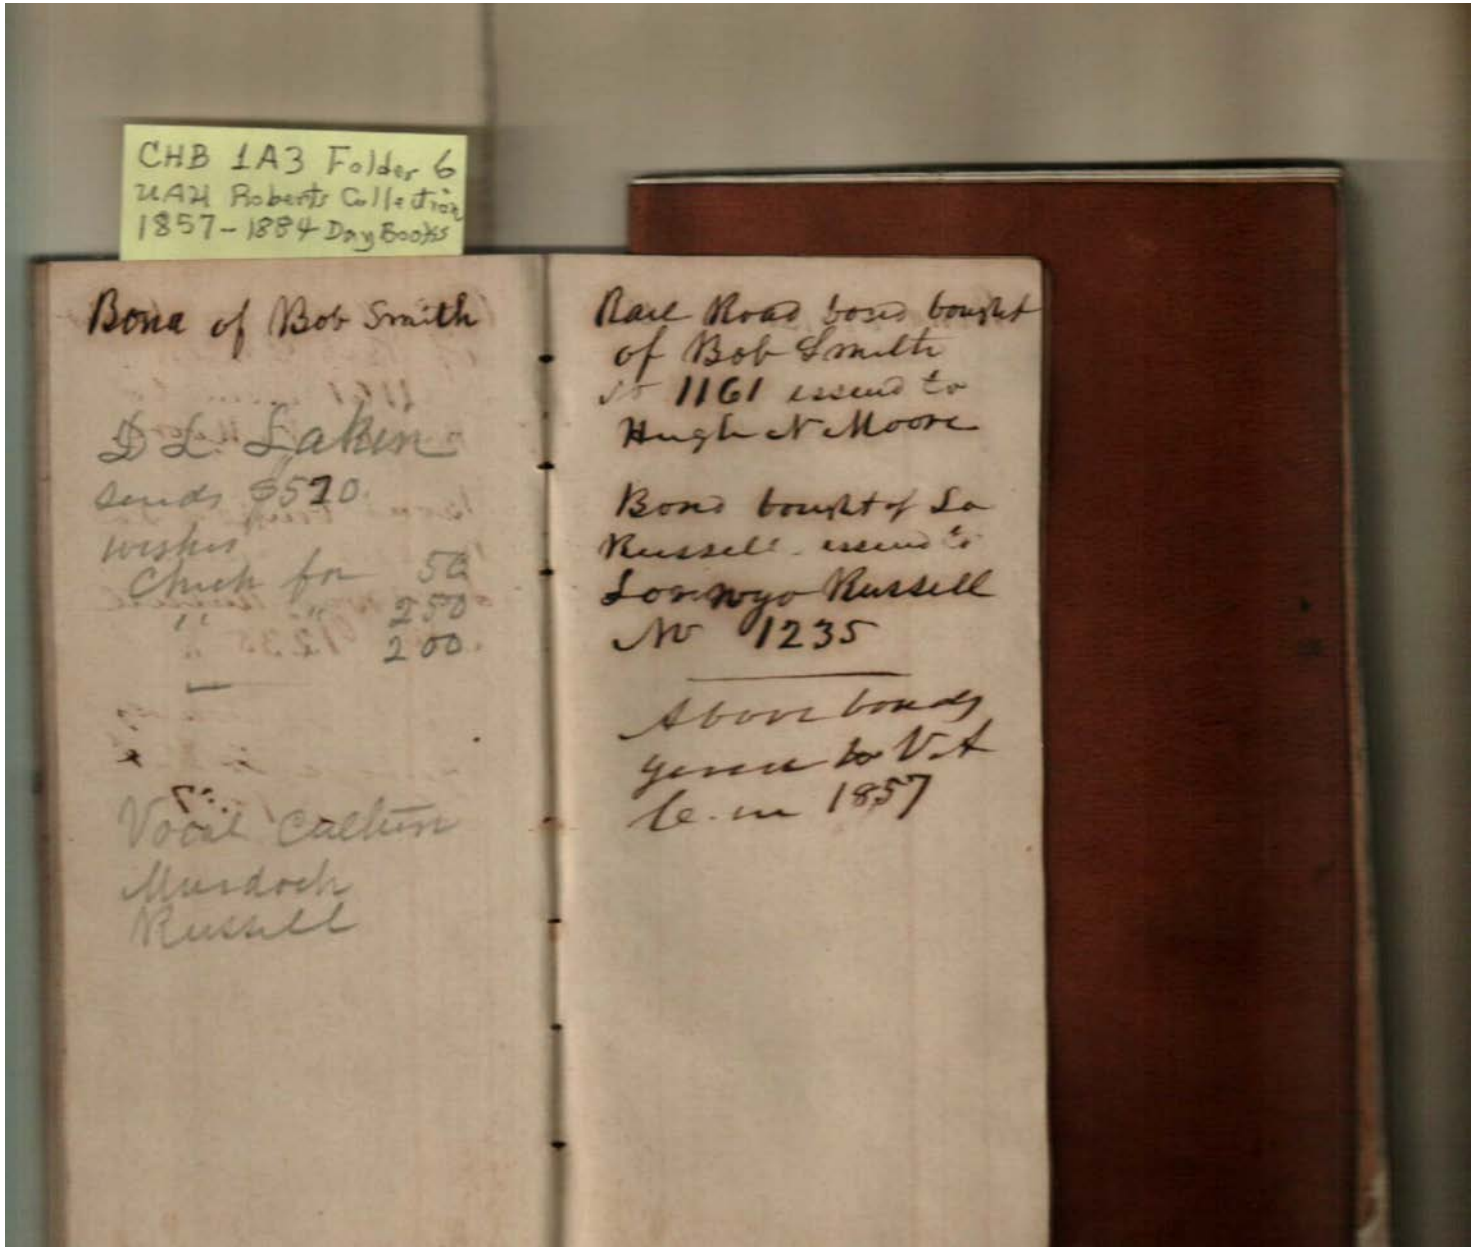 CHB 1A3 Folder 6
UAH Roberts Collection
1857-1884 Day Books
Bond of Bob Smith
D L. Lakin
sends $520.
wishes
Check for 50
" " 250
200.
Vocal Culture
Murdoch
Russell
Rail Road bond bought
of Bob Smith
No 1161 issued to
Hugh N Moore
Bond bought of Lo
Russell issued to
Lorenzo Russell
No 1235
Above bonds
given to V. A
in 1857